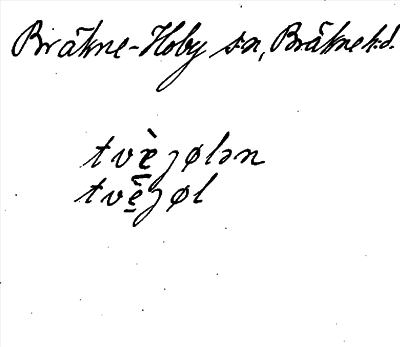 Bräkne-Hoby sn, Bräkne h.d.
tvè̱ʒølən
tvè̱ʒøl